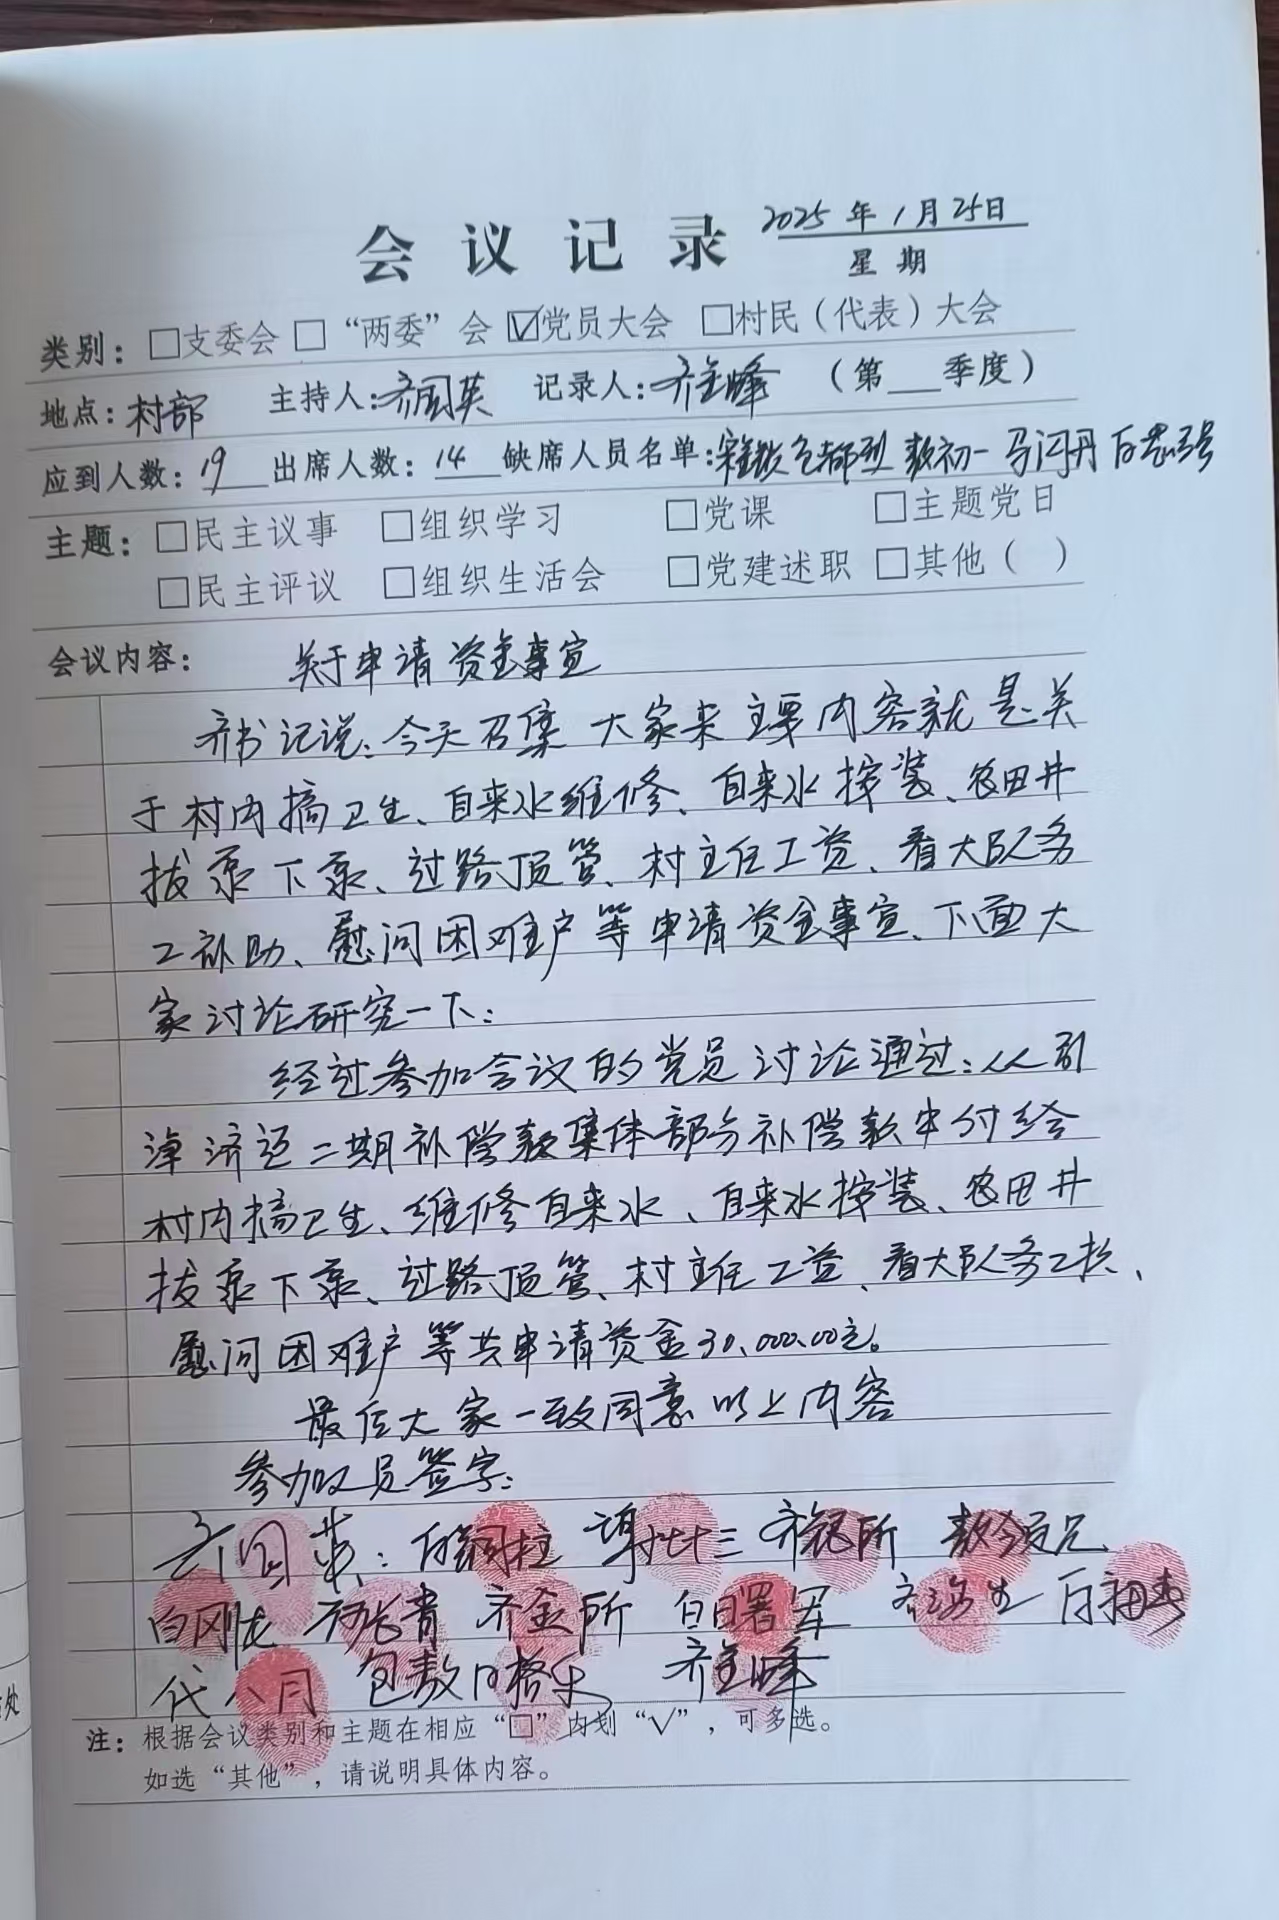 会议记录 2025年1月25日
星期
类别：□支委会 □“两委”会 ☑党员大会 □村民（代表）大会
地点：村部 主持人：齐国英 记录人：齐金峰 （第___季度）
应到人数：19 出席人数：14 缺席人员名单：包都烈 敖初一 马闪丹
主题：□民主议事 □组织学习 □党课 □主题党日
□民主评议 □组织生活会 □党建述职 □其他（ ）
会议内容： 关于申请资金事宜
齐书记说：今天召集大家来主要内容就是关
于村内搞卫生、自来水维修、自来水按装、农田井
拔泵下泵、过路顶管、村主任工资、看大队务
工补助、慰问困难户等申请资金事宜、下面大
家讨论研究一下：
经过参加会议的党员讨论通过：从引
淖济辽二期补偿款集体部分补偿款中付给
村内搞卫生、维修自来水、自来水按装、农田井
拔泵下泵、过路顶管、村主任工资、看大队务工补、
慰问困难户等共申请资金30,000.00元。
最后大家一致同意以上内容
参加人员签字：
齐国英： 白铜柱 谢七十三 齐铭所
白刚龙 齐金所 白曙军
代八月 包敖日格乐 齐金峰
注：根据会议类别和主题在相应“□”内划“√”，可多选。
如选“其他”，请说明具体内容。
处